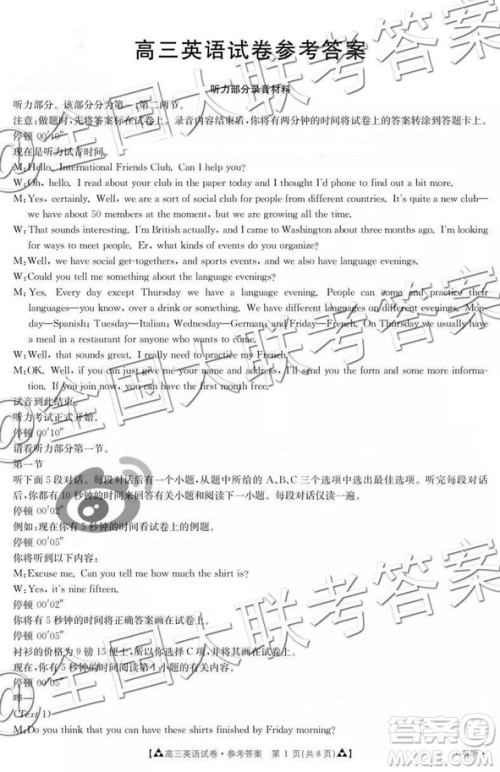 高三英语试卷参考答案
听力部分录音材料
听力部分。该部分分为第一、第二两节。
注意:做题时,先将答案标在试卷上。录音内容结束后,你将有两分钟的时间将试卷上的答案转涂到答题卡上。
停顿 00′10″
现在是听力试音时间。
M: Hello. International Friends Club. Can I help you?
W: Oh, hello. I read about your club in the paper today and I thought I'd phone to find out a bit more.
M: Yes, certainly. Well, we are a sort of social club for people from different countries. It's quite a new club—
we have about 50 members at the moment, but we are growing all the time.
W: That sounds interesting. I'm British actually, and I came to Washington about three months ago. I'm looking
for ways to meet people. Er, what kinds of events do you organize?
M: Well, we have social get-togethers, and sports events, and we also have language evenings.
W: Could you tell me something about the language evenings?
M: Yes. Every day except Thursday we have a language evening. People can come and practise their
languages—you know, over a drink or something. We have different languages on different evenings. Mon-
day—Spanish; Tuesday—Italian; Wednesday—German; and Friday—French. On Thursday we usually
have a meal in a restaurant for anyone who wants to come.
W: Well, that sounds great. I really need to practise my French.
M: OK. Well, if you can just give me your name and address, I'll send you the form and some more informa-
tion. If you join now, you can have the first month free.
试音到此结束。
听力考试正式开始。
停顿 00′10″
请看听力部分第一节。
第一节
听下面5段对话。每段对话后有一个小题,从题中所给的A、B、C三个选项中选出最佳选项。听完每段对话
后,你都有10秒钟的时间来回答有关小题和阅读下一小题。每段对话仅读一遍。
停顿 00′02″
例如:现在你有5秒钟的时间看试卷上的例题。
停顿 00′05″
你将听到以下内容:
M: Excuse me. Can you tell me how much the shirt is?
W: Yes, it's nine fifteen.
停顿 00′02″
你将有5秒钟的时间将正确答案画在试卷上。
停顿 00′05″
衬衫的价格为9镑15便士,所以你选择C项,并将其标在试卷上。
现在你有5秒钟的时间阅读第1小题的有关内容。
停顿 00′05″
嘀—
(Text 1)
M: Do you think that you can have these shirts finished by Friday morning?
【高三英语试卷·参考答案 第 1 页(共 8 页)】
@全国大联考答案
@全国大联考答案
@全国大联考答案